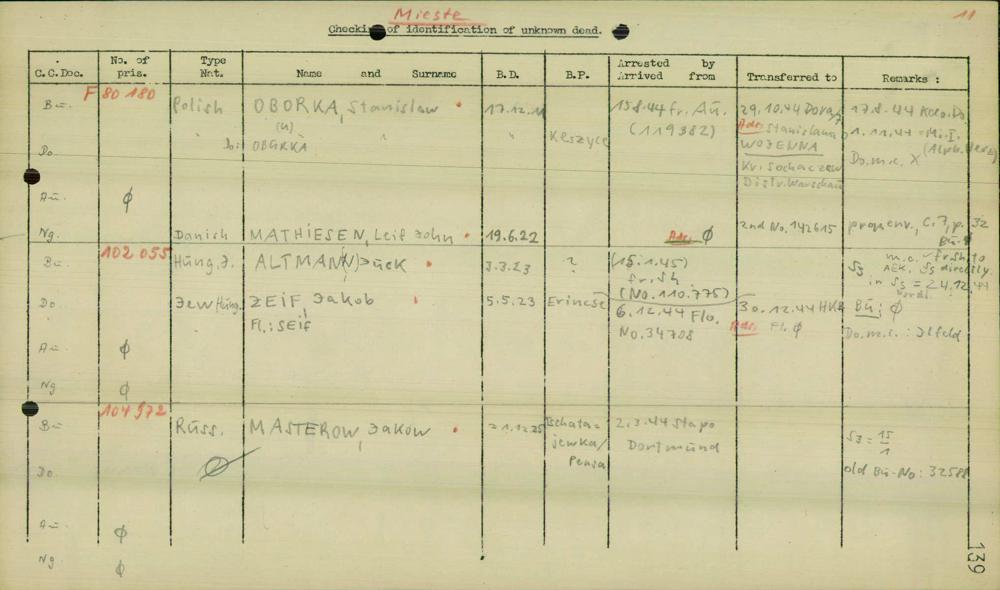 Mieste
11
Checking of identification of unknown dead.
C.C.Doc. No. of pris. Type Nat. Name and Surname B.D. B.P. Arrested by Arrived from Transferred to Remarks :
F 80 180
Bu. Polish OBORKA, Stanislaw 17.12.11 15.8.44 fr. Au. 29.10.44 Dora 17.8.44 Ko
(u) (119382) Adr. Stanislawa 1.11.44 = Mi.I.
Do. " Do: OBURKA " " Keszyce WOJENNA (Alph. Verz)
Kr. Sochaczew Do.m.c. X
Distr. Warschau
Au. ∅
Ng. Danish MATHIESEN, Leif John 19.6.22 Adr. ∅ 2nd No. 142615 propenv., C.7, p. 32
Bu. ∅
102 055
Bu. Hung. J. ALTMAN(N) Jück 3.3.23 ? (15.1.45) m.c. fr. Sh to
fr. Sh AEK. Ss directly
(No. 110.775) in Ss = 24.12.44
Do. Jew Hung. ZEIF, Jakob 5.5.23 Erincse 6.12.44 Flo. 30.12.44 HKB Bu: ∅
Fl.: SEif No. 34708 Adr. Fl. ∅ Do.m.c.: Ilfeld
Au. ∅
Ng ∅
104 972
Bu. Russ. MASTEROW, Jakow 21.12.25 Tschata= 2.3.44 Stapo Sz = 15/1
jewka/ Dortmund
Do. ∅ Pensa old Bu-No: 32588
Au. ∅
Ng ∅
139